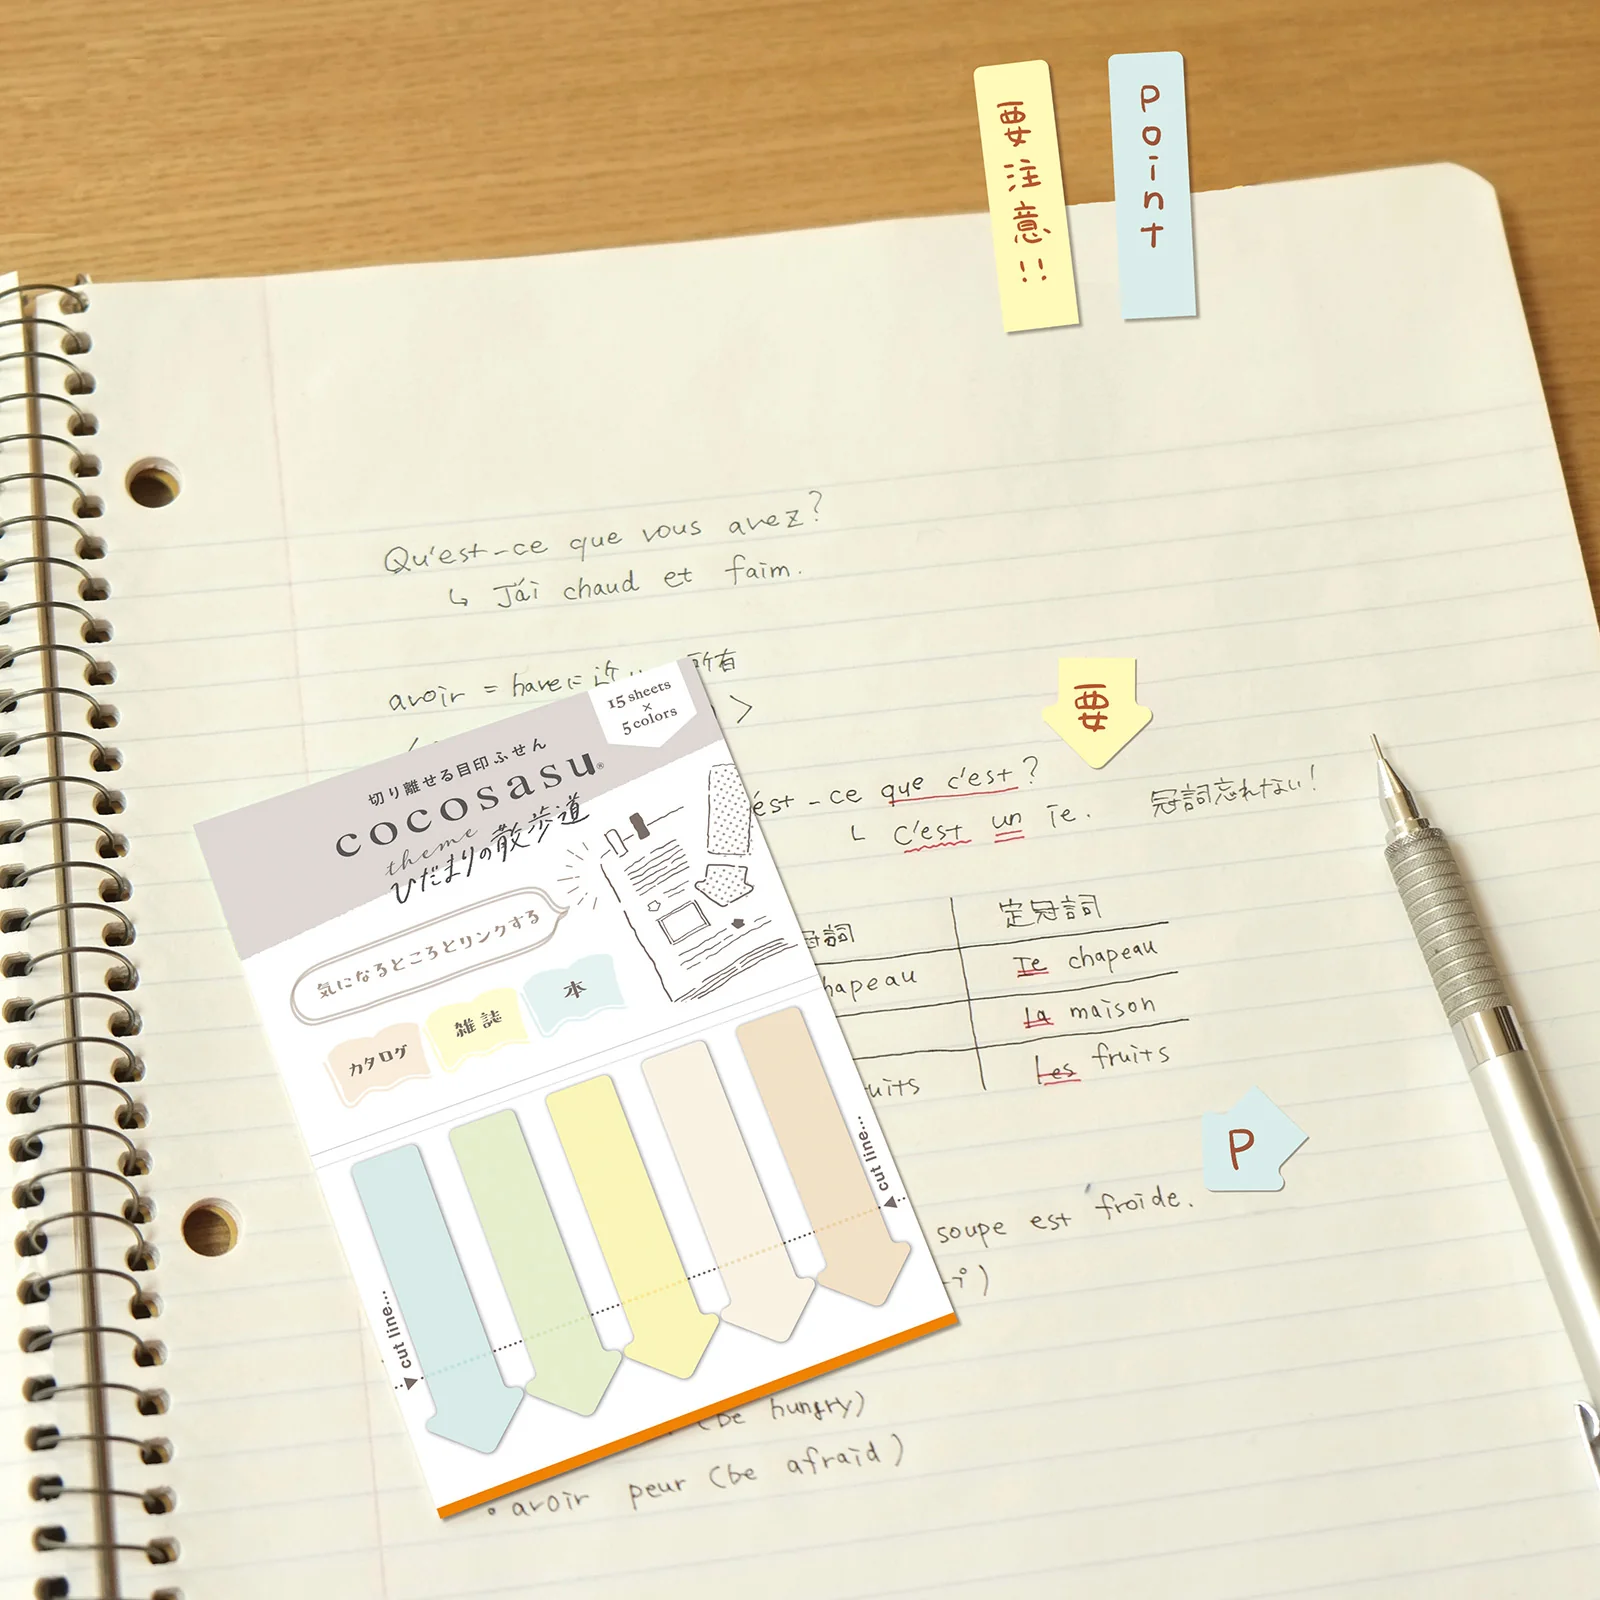 要注意!!
Point
Qu'est-ce que vous avez?
↳ J'ai chaud et faim.
avoir = haveに近い 所有
>
要
est-ce que c'est?
└ c'est un ie.
冠詞忘れない!
冠詞
定冠詞
hapeau
Ie chapeau
la maison
uits
Les fruits
P
soupe est froide.
(be hungry)
• avoir peur (be afraid)
15 sheets
×
5 colors
切り離せる目印ふせん
cocosasu®
theme
ひだまりの散歩道
気になるところとリンクする
カタログ
雑誌
本
cut line...
cut line...